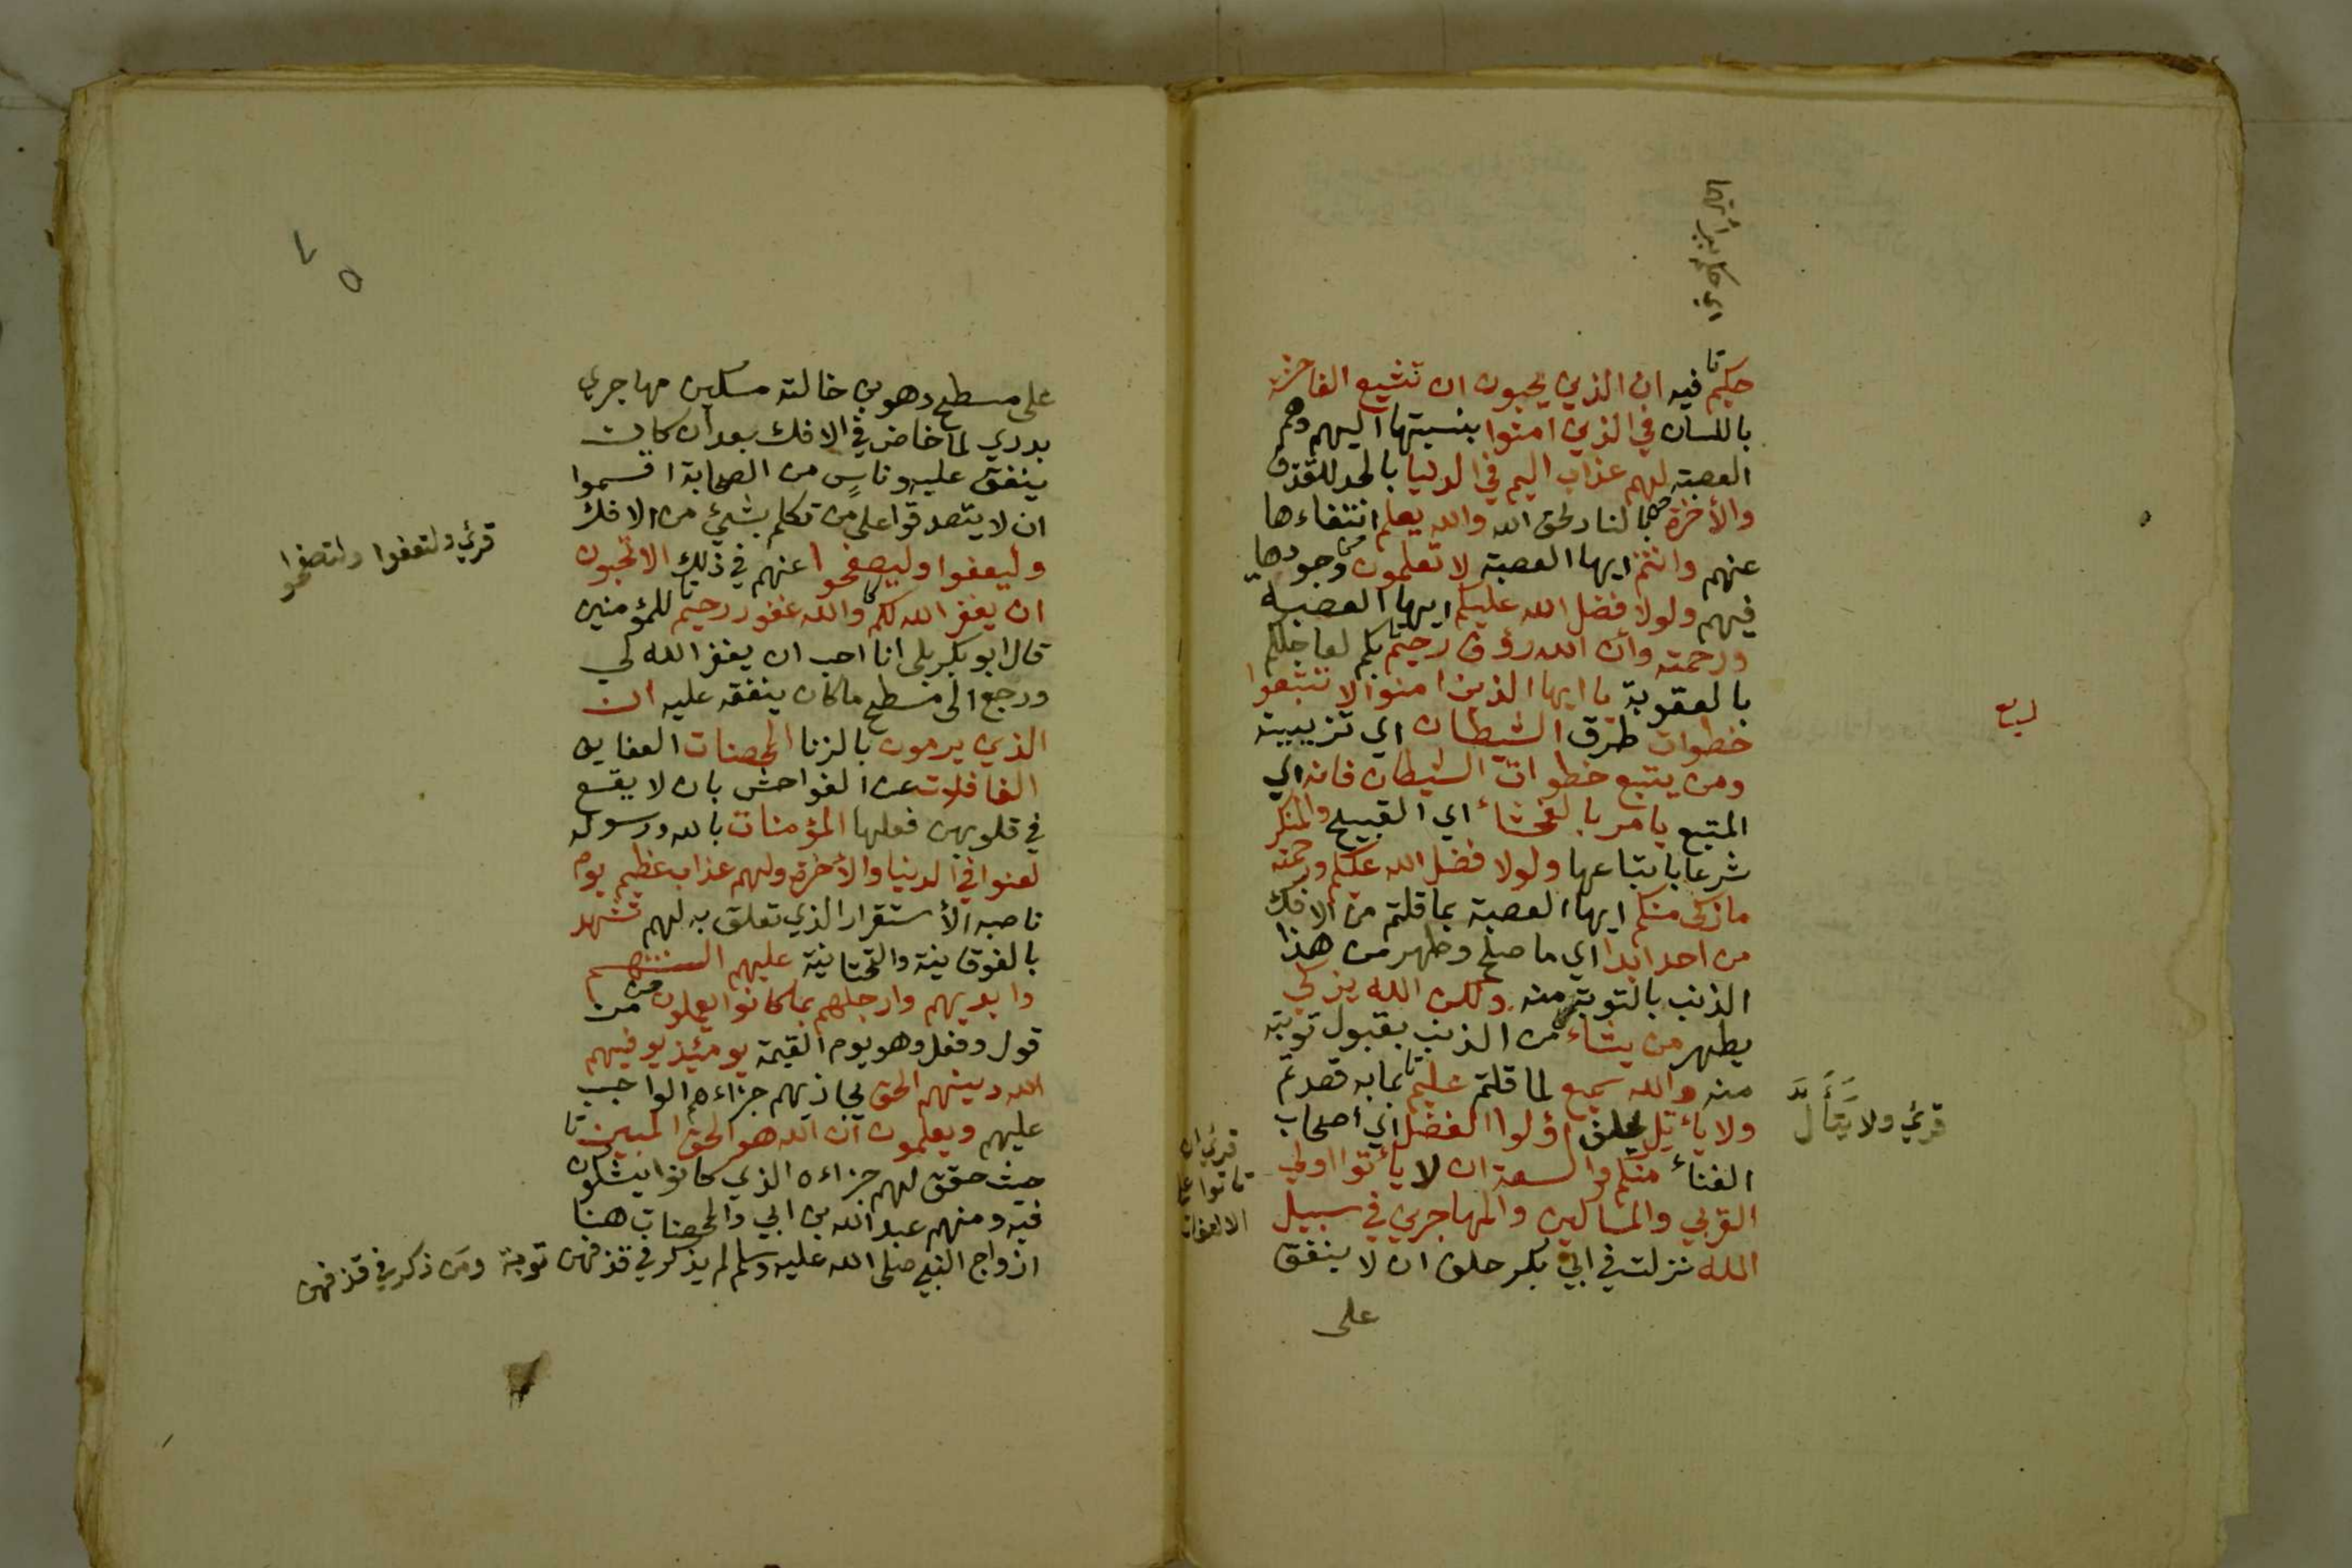 اي حكم ببرائتها
حكيم تا فيه ان الذين يحبون ان تشيع الفاحشة
باللسان في الذين امنوا بنسبتها اليهم وهم
العصبة لهم عذاب اليم في الدنيا بالحد للقذف
والأخرة لحق الله والله يعلم انتفاءها
عنهم وانتم ايها العصبة لا تعلمون وجودها
فيهم ولولا فضل الله عليكم ايها العصبة
ورحمته وأن الله رؤف رحيم بكم لعاجلكم
بالعقوبة يا ايها الذين امنوا لا تتبعوا
خطوات طرق الشيطان اي تزيينه
ومن يتبع خطوات الشيطان فانه اي
المتبع يامر بالفحشاء اي القبيح والمنكر
شرعا باتباعها ولولا فضل الله عليكم ورحمته
ما زكى منكم ايها العصبة بما قلتم من الافك
من احد ابدا اي ما صلح وطهر من هذا
الذنب بالتوبة منه ولكن الله يزكي
يطهر من يشاء من الذنب بقبول توبته
منه والله سميع لما قلتم عليم تا بما به قصدتم
ولا يأتل يحلف اولوا الفضل اي أصحاب
الغناء منكم والسعة ان لا يأتوا اولي
القربي والمساكين والمهاجرين في سبيل
الله نزلت في ابي بكر حلف ان لا ينفق
على
قرئ ولا يتأل
قرئ ان
تاتوا على
الالتفات
على مسطح وهو بن خالته مسكين مهاجري
بدري لما خاض في الافك بعد ان كان
ينفق عليه وناس من الصحابة اقسموا
ان لا يتصدقوا على من تكلم بشيئ من الافك
وليعفوا وليصفحوا عنهم في ذلك الا تحبون
ان يغفر الله لكم والله غفور رحيم للمؤمنين
قال ابو بكر بلى انا احب ان يغفر الله لي
ورجع الى مسطح ما كان ينفقه عليه ان
الذين يرمون بالزنا المحصنات العفايف
الغافلات عن الفواحش بان لا يقع
في قلوبهن فعلها المؤمنات بالله ورسوله
لعنوا في الدنيا والأخرة ولهم عذاب عظيم يوم
ناصبه الأستقرار الذي تعلق به لهم تشهد
بالفوقانية والتحتانية عليهم السنتهم
وايديهم وارجلهم بما كانوا يعملون من
قول وفعل وهو يوم القيمة يومئذ يوفيهم
الله دينهم الحق يجازيهم جزاءهم الواجب
عليهم ويعلمون أن الله هو الحق المبين تا
حيث حقق لهم جزاءه الذي كانوا يشكون
فيه ومنهم عبد الله بن ابي والمحصنات هنا
ازواج النبي صلى الله عليه وسلم لم يذكر في قذفهن توبة ومن ذكر في قذفهن
قرئ ولتعفوا ولتصفحوا